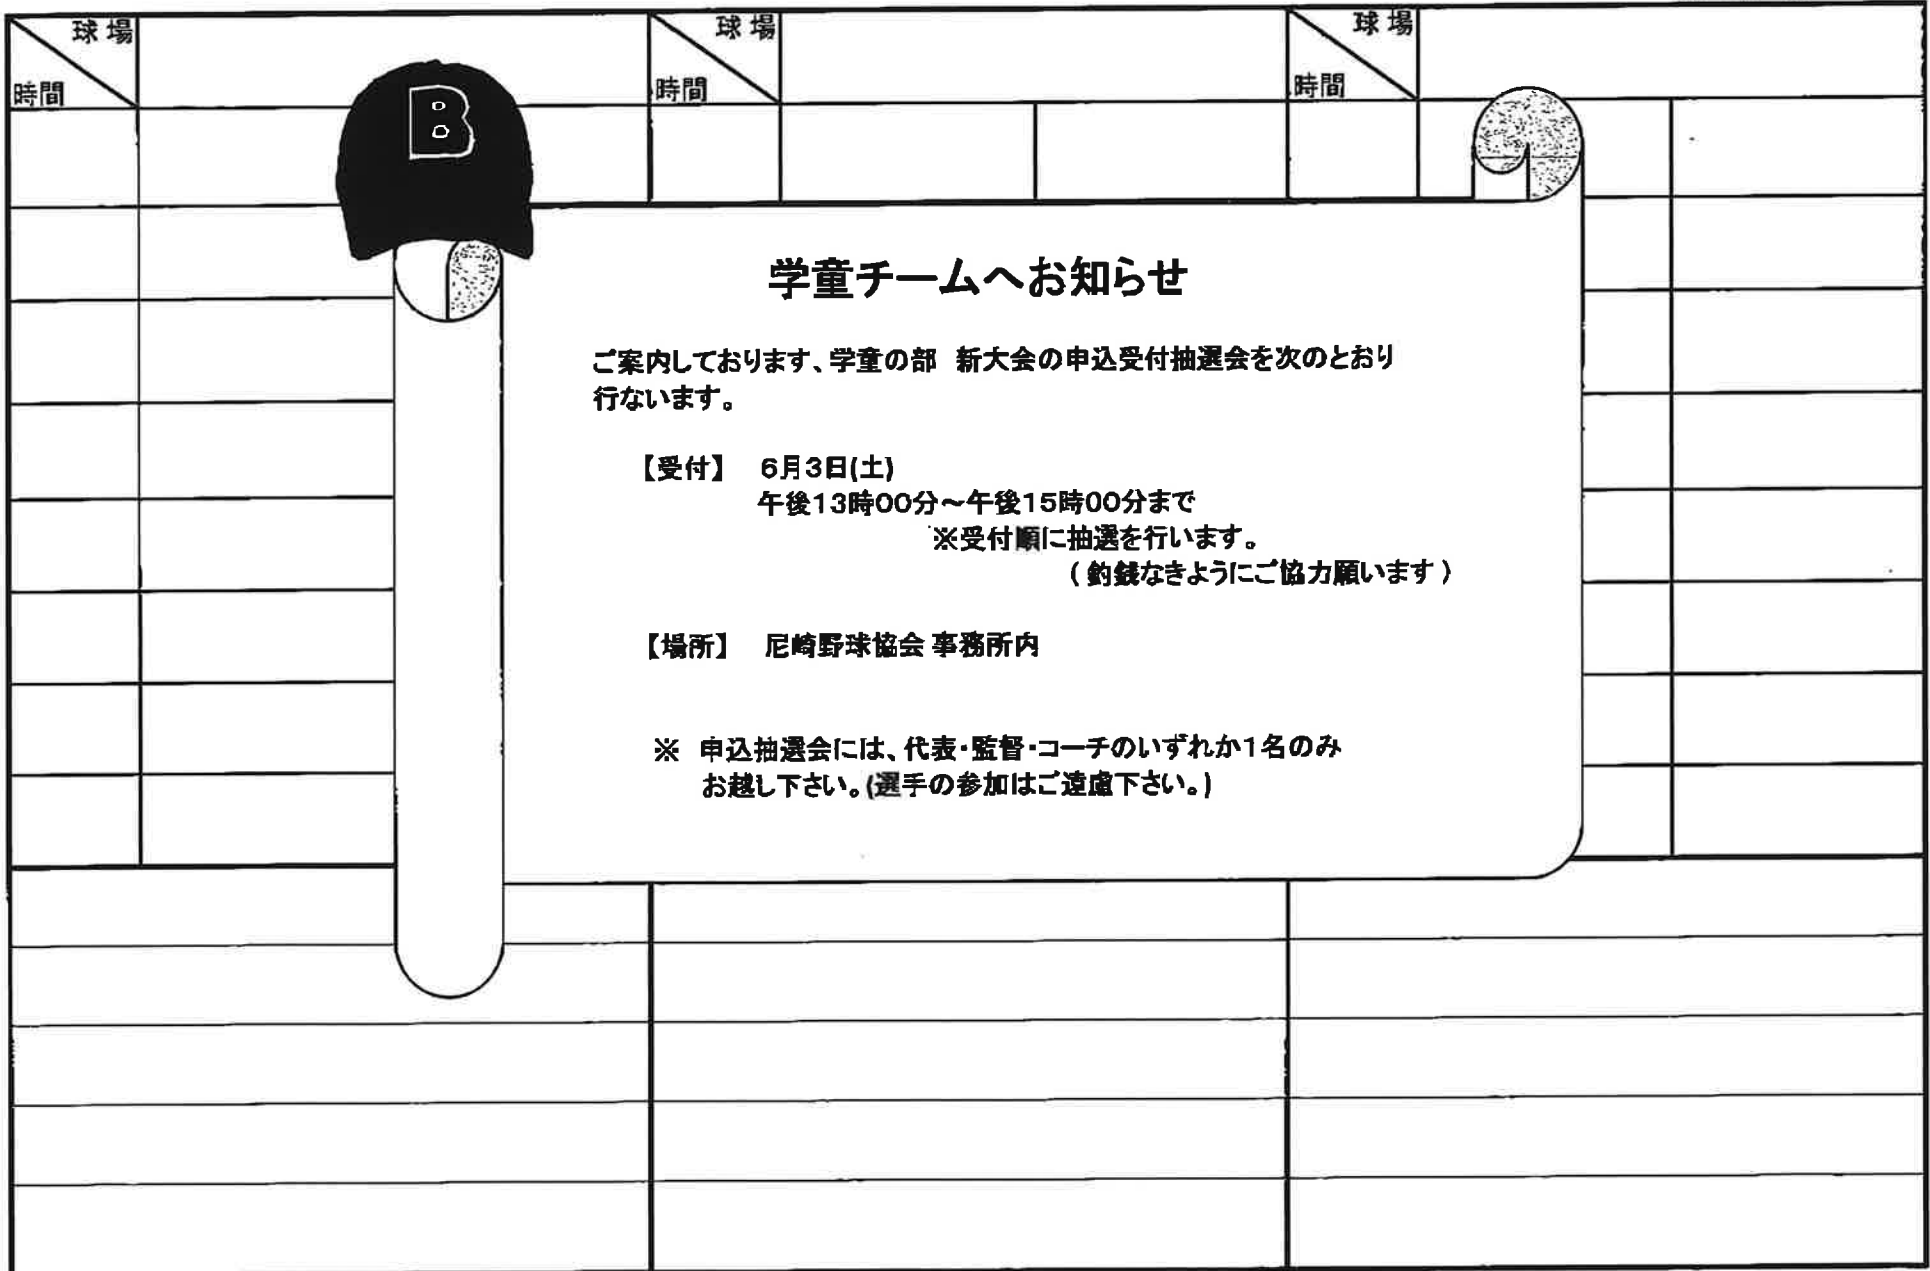 球場
時間
球場
時間
球場
時間
B
学童チームへお知らせ
ご案内しております、学童の部 新大会の申込受付抽選会を次のとおり
行ないます。
【受付】 6月3日(土)
午後13時00分～午後15時00分まで
※受付順に抽選を行います。
(釣銭なきようにご協力願います)
【場所】 尼崎野球協会 事務所内
※ 申込抽選会には、代表・監督・コーチのいずれか1名のみ
お越し下さい。(選手の参加はご遠慮下さい。)